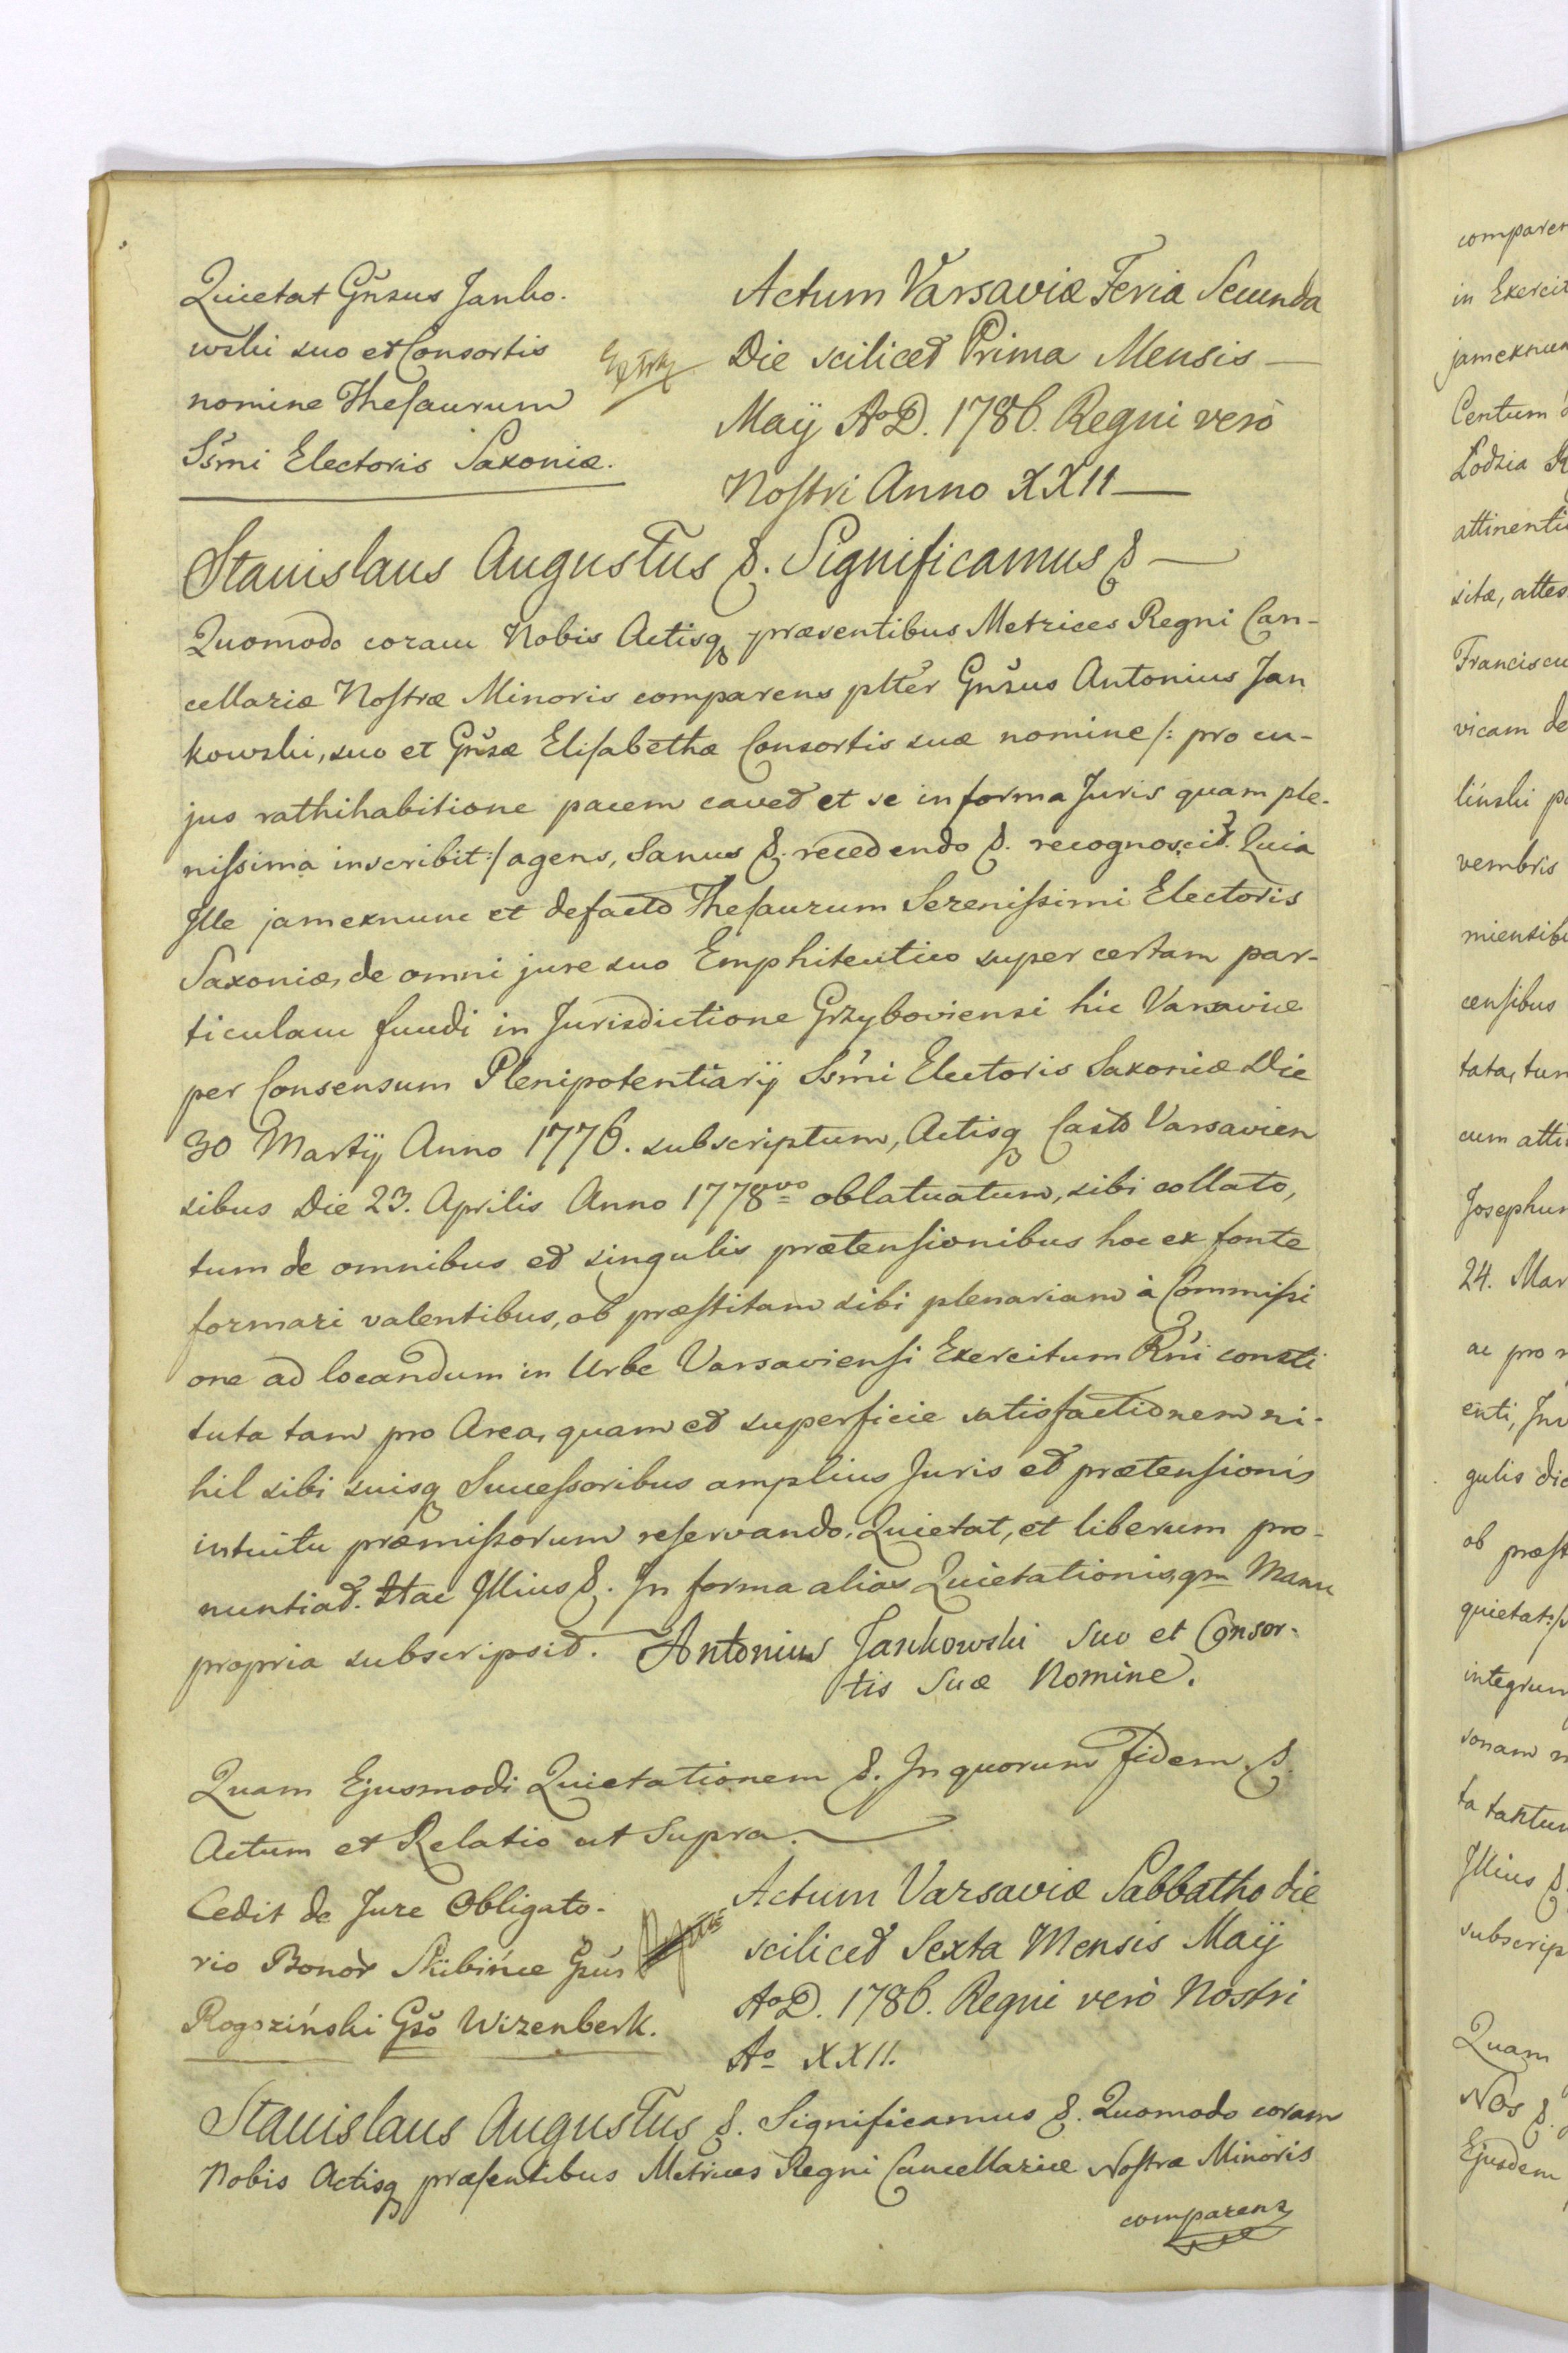 Quietat Gnsus Janko-
wski suo et Consortis
nomine Thesaurum
Ssmi Electoris Saxoniæ.
Extr
Actum Varsaviæ Feria Secunda
Die scilicet Prima Mensis —
Maÿ AoD. 1786. Regni verò
Nostri Anno XXII —
Stanislaus Augustus &. Significamus & —
Quomodo coram Nobis Actisq præsentibus Metrices Regni Can-
cellariæ Nostræ Minoris comparens pltter Gnsus Antonius Jan
kowski, suo et Gnsæ Elisabethæ Consortis suæ nomine /: pro cu-
jus rathihabitione pacem cavet et se in forma Juris quam ple-
nissima inscribit :/ agens, Sanus &. recedendo &. recognoscit. Quia
Ille jamexnunc et defacto Thesaurum Serenissimi Electoris
Saxoniæ, de omni jure suo Emphiteutico super certam par-
ticulam fundi in Jurisdictione Grzyboviensi hic Varsaviæ
per Consensum Plenipotentiarÿ Ssmi Electoris Saxoniæ Die
30 Martÿ Anno 1776. subscriptum, Actisq Casto Varsavien
sibus Die 23. Aprilis Anno 1778vo oblatuatum, sibi collato,
tum de omnibus et singulis prætensionibus hoc ex fonte
formari valentibus, ob præstitam sibi plenariam à Commissi
one ad locandum in Urbe Varsaviensi Exercitum Rni consti
tuta tam pro Area, quam et superficie satisfactionem ni-
hil sibi suisq Successoribus amplius Juris et prætensionis
intuitu præmissorum reservando. Quietat, et liberum pro-
nuntiat. Hac Illius &. In forma alias Quietationis, qm Manu
propria subscripsit. Antonius Jankowski Suo et Consor-
tis Suæ Nomine.
Quam Ejusmodi Quietationem &. In quorum fidem &.
Actum et Relatio ut Supra.
Cedit de Jure Obligato-
rio Bonor Skibińce Gnus
Rogoziński Gso Wizenberk.
Actum Varsaviæ Sabbatho die
scilicet Sexta Mensis Maÿ
AoD. 1786. Regni verò Nostri
Ao XXII.
Stanislaus Augustus &. Significamus &. Quomodo coram
Nobis Actisq præsentibus Metrices Regni Cancellariæ Nostræ Minoris
comparens
comparen
in Exercit
jamexnun
Centum
Łodzia
attinenti
sitæ, attes
Franciscu
vicam de
liński
vembris
miensibu
censibus
tata, tum
cum atti
Josephum
24. Mar
ac pro
enti, Juv
gulis dic
ob præst
quietat
integrum
sonam
ta tantum
Illius &.
subscrip
Quam
Nos &.
Ejusdem